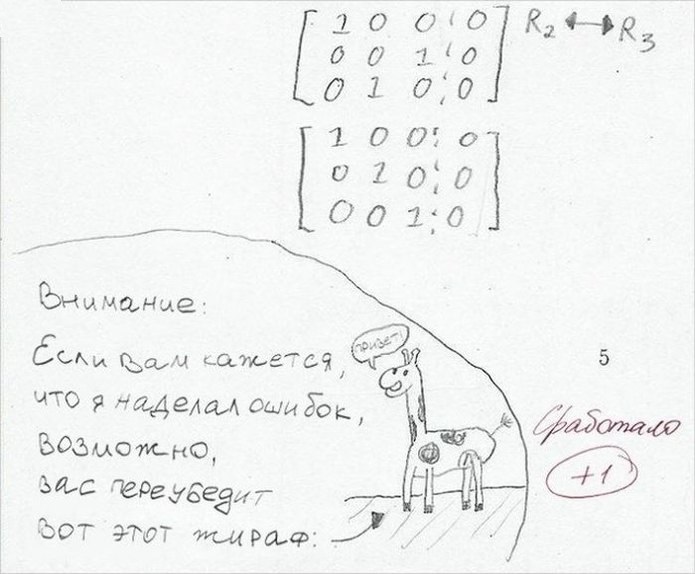 1 0 0 0 R2 ↔ R3
0 0 1 0
0 1 0 0
1 0 0 0
0 1 0 0
0 0 1 0
Внимание:
Если вам кажется,
что я наделал ошибок,
возможно,
вас переубедит
вот этот жираф:
ПРИВЕТ!
5
Сработало
+1